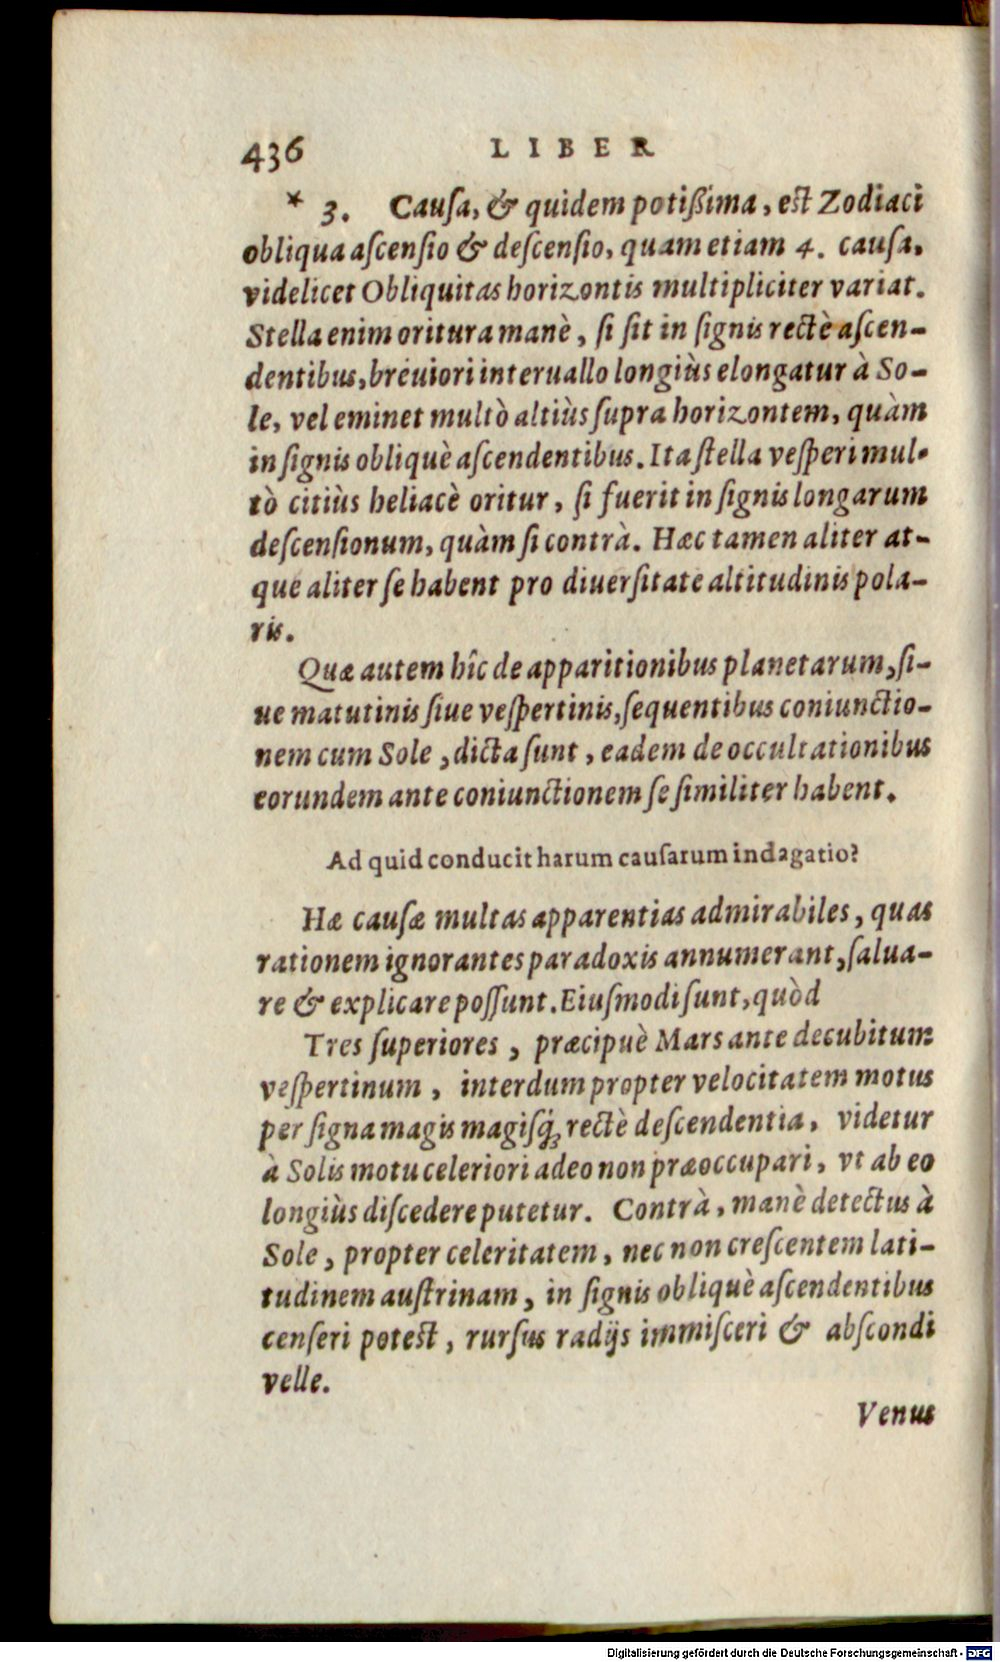 436 LIBER
* 3. Cauſa, & quidem potißima, est Zodiaci
obliqua aſcenſio & deſcenſio, quam etiam 4. cauſa,
videlicet Obliquitas horizontis multipliciter variat.
Stella enim oritura manè, ſi ſit in ſignis rectè aſcen-
dentibus, breuiori interuallo longiùs elongatur à So-
le, vel eminet multò altiùs ſupra horizontem, quàm
in ſignis obliquè aſcendentibus. Ita ſtella veſperi mul-
tò citiùs heliacè oritur, ſi fuerit in ſignis longarum
deſcenſionum, quàm ſi contrà. Hæc tamen aliter at-
que aliter ſe habent pro diuerſitate altitudinis pola-
ris.
Quæ autem hîc de apparitionibus planetarum, ſi-
ue matutinis ſiue veſpertinis, ſequentibus coniunctio-
nem cum Sole, dicta ſunt, eadem de occultationibus
eorundem ante coniunctionem ſe ſimiliter habent.
Ad quid conducit harum cauſarum indagatio?
Hæ cauſæ multas apparentias admirabiles, quas
rationem ignorantes paradoxis annumerant, ſalua-
re & explicare poſſunt. Eiuſmodi ſunt, quòd
Tres ſuperiores, præcipuè Mars ante decubitum
veſpertinum, interdum propter velocitatem motus
per ſigna magis magiſq́ꝫ rectè deſcendentia, videtur
à Solis motu celeriori adeo non præoccupari, vt ab eo
longiùs diſcedere putetur. Contrà, manè detectus à
Sole, propter celeritatem, nec non creſcentem lati-
tudinem auſtrinam, in ſignis obliquè aſcendentibus
cenſeri potest, rurſus radijs immiſceri & abſcondi
velle.
Venus
Digitalisierung gefördert durch die Deutsche Forschungsgemeinschaft - DFG